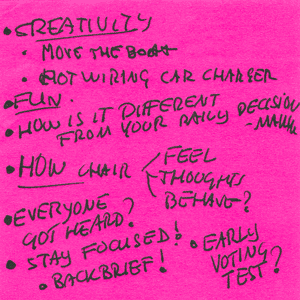 • CREATIVITY
• MOVE THE BOAT
• HOT WIRING CAR CHARGER
• FUN.
• HOW IS IT DIFFERENT
FROM YOUR DAILY DECISION
- MAKING
• HOW CHAIR
FEEL
THOUGHTS
BEHAVE?
• EVERYONE
GOT HEARD?
• STAY FOCUSED!
• BACKBRIEF!
• EARLY
VOTING
TEST?